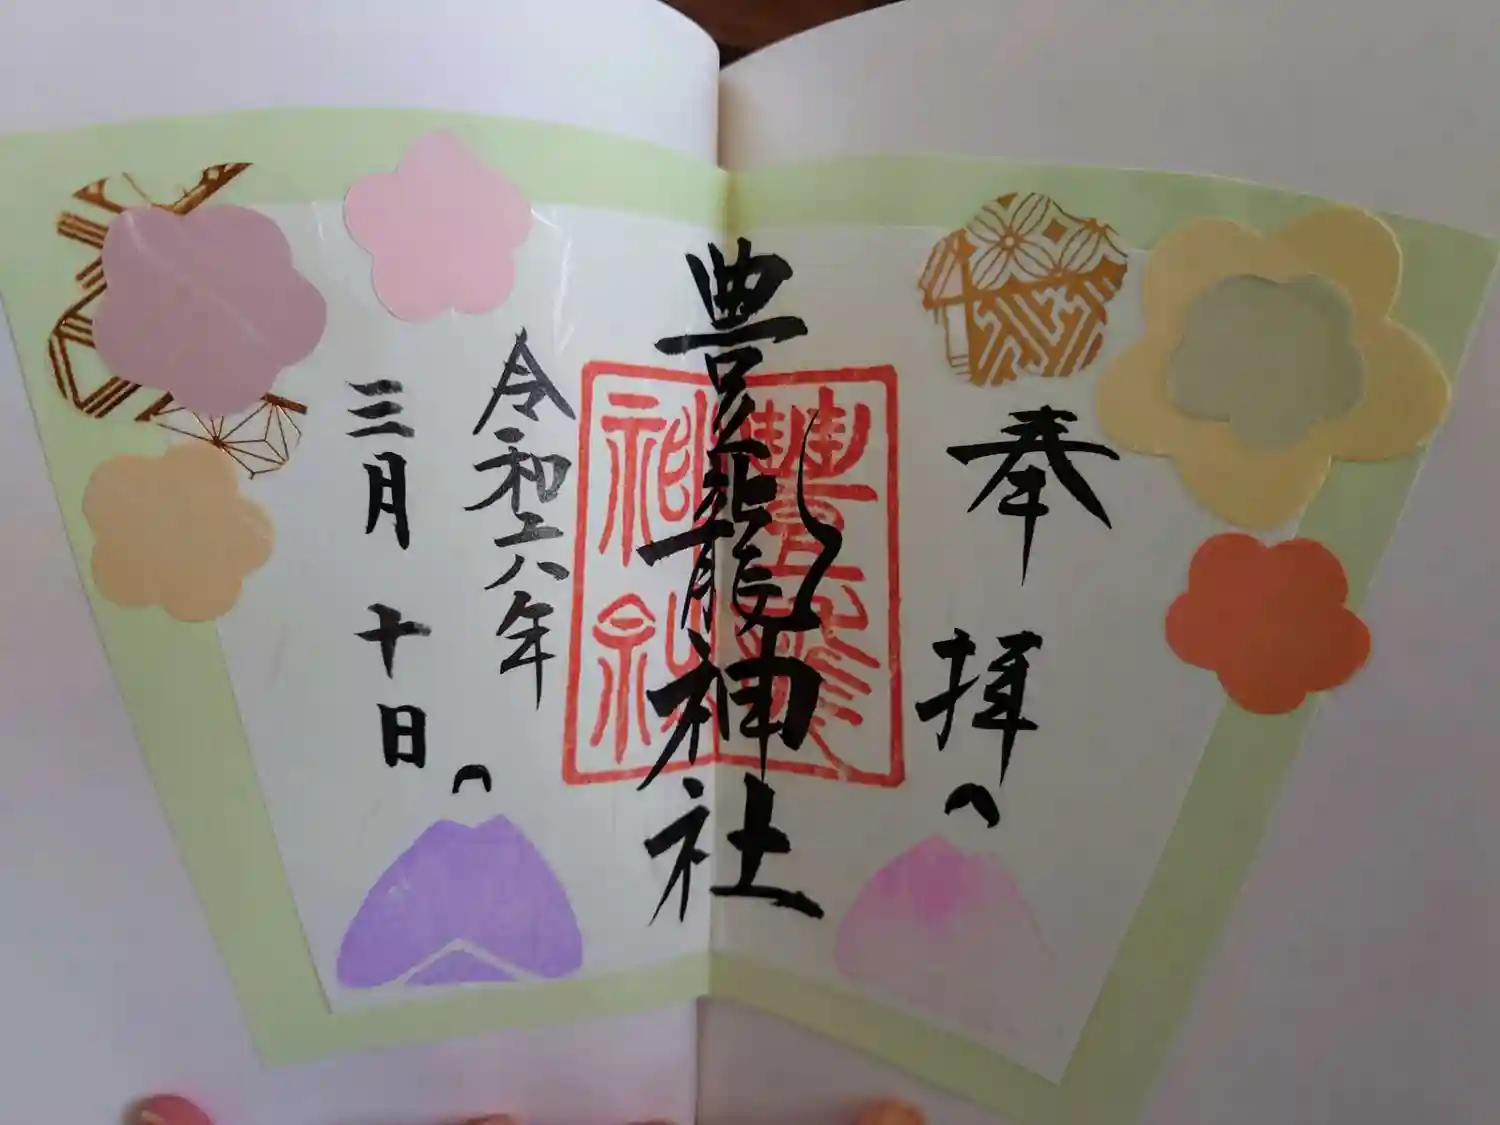 奉拝
豊龍神社
豊龍神社
令和六年
三月十日